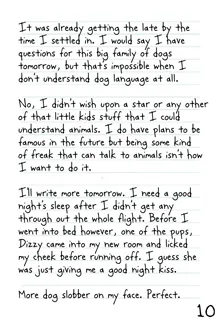 It was already getting the late by the
time I settled in. I would say I have
questions for this big family of dogs
tomorrow, but that's impossible when I
don't understand dog language at all.
No, I didn't wish upon a star or any other
of that little kids stuff that I could
understand animals. I do have plans to be
famous in the future but being some kind
of freak that can talk to animals isn't how
I want to do it.
I'll write more tomorrow. I need a good
night's sleep after I didn't get any
through out the whole flight. Before I
went into bed however, one of the pups,
Dizzy came into my new room and licked
my cheek before running off. I guess she
was just giving me a good night kiss.
More dog slobber on my face. Perfect.
10